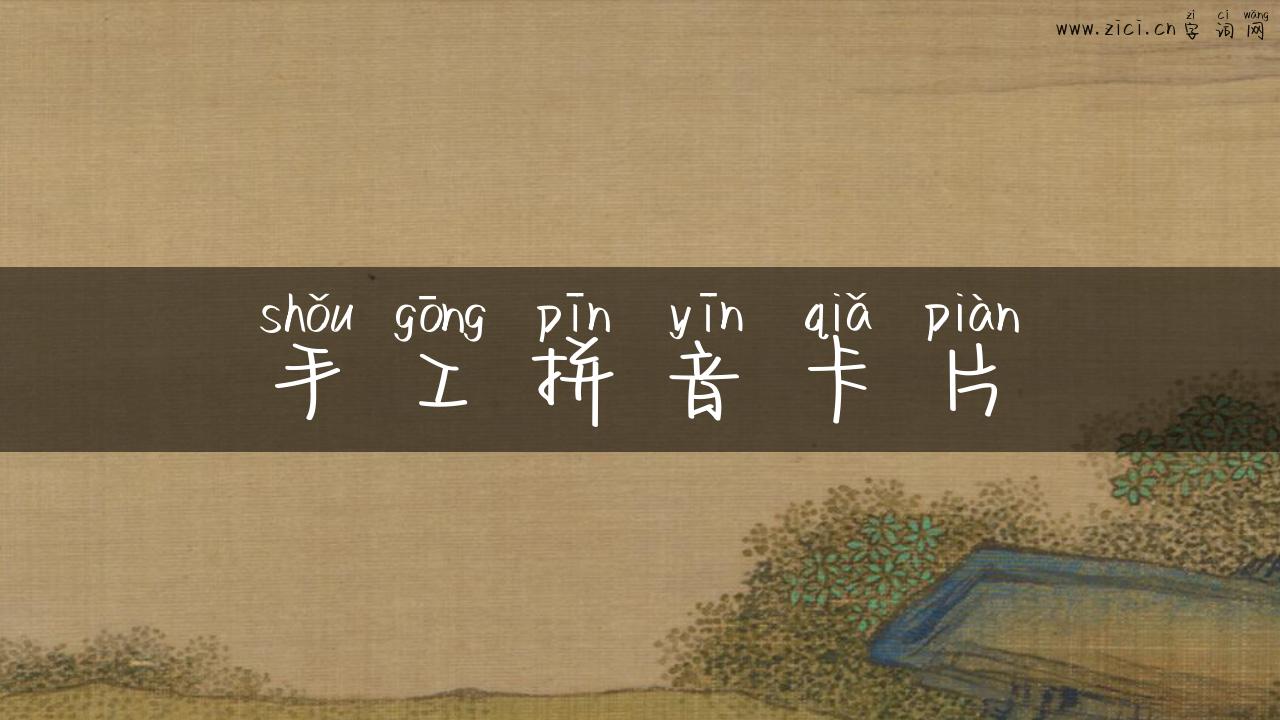 zì cí wǎng
www.zici.cn 字词网
shǒu gōng pīn yīn qiǎ piàn
手工拼音卡片